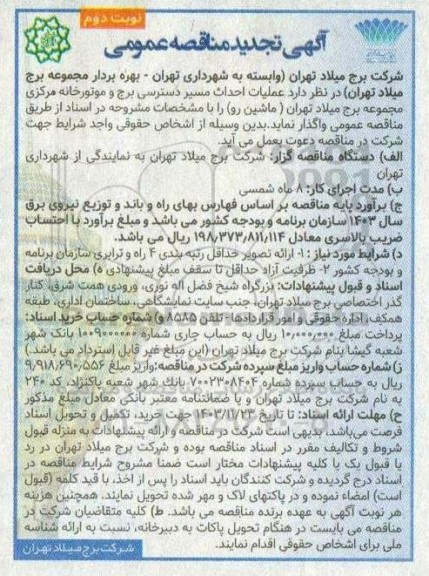 نوبت دوم
آگهی تجدید مناقصه عمومی
شرکت برج میلاد تهران (وابسته به شهرداری تهران - بهره بردار مجموعه برج
میلاد تهران) در نظر دارد عملیات احداث مسیر دسترسی برج و موتورخانه مرکزی
مجموعه برج میلاد تهران ( ماشین رو) را با مشخصات مشروحه در اسناد از طریق
مناقصه عمومی واگذار نماید.بدین وسیله از اشخاص حقوقی واجد شرایط جهت
شرکت در مناقصه دعوت بعمل می آید.
الف) دستگاه مناقصه گزار: شرکت برج میلاد تهران به نمایندگی از شهرداری
تهران
ب) مدت اجرای کار: ۸ ماه شمسی
ج) برآورد پایه مناقصه بر اساس فهارس بهای راه و باند و توزیع نیروی برق
سال ۱۴۰۳ سازمان برنامه و بودجه کشور می باشد و مبلغ برآورد با احتساب
ضریب بالاسری معادل ۱۹۸،۳۷۳،۸۱۱،۱۱۴ ریال می باشد.
د) شرایط مورد نیاز : ۱- ارائه تصویر حداقل رتبه بندی ۴ راه و ترابری سازمان برنامه
و بودجه کشور ۲- ظرفیت آزاد حداقل تا سقف مبلغ پیشنهادی ه) محل دریافت
اسناد و قبول پیشنهادات: بزرگراه شیخ فضل اله نوری، ورودی همت شرق، کنار
گذر اختصاصی برج میلاد تهران، جنب سایت نمایشگاهی، ساختمان اداری، طبقه
همکف، اداره حقوقی و امور قراردادها- تلفن ۸۵۸۵ و) شماره حساب خرید اسناد:
پرداخت مبلغ ۱۰،۰۰۰،۰۰۰ ریال به حساب جاری شماره ۱۰۰۹۰۰۰۰۰۰ بانک شهر
شعبه گیشا بنام شرکت برج میلاد تهران (این مبلغ غیر قابل استرداد می باشد.)
ز) شماره حساب واریز مبلغ سپرده شرکت در مناقصه: واریز مبلغ ۹،۹۱۸،۶۹۰،۵۵۶
ریال به حساب سپرده شماره ۷۰۰۲۳۰۸۴۰۴ بانک شهر شعبه پاکنژاد، کد ۲۴۰
به نام شرکت برج میلاد تهران و یا ضمانتنامه معتبر بانکی معادل مبلغ مذکور
ح) مهلت ارائه اسناد: تا تاریخ ۱۴۰۳/۱۱/۲۳ جهت خرید، تکمیل و تحویل اسناد
فرصت می‌باشد، بدیهی است شرکت در مناقصه و ارائه پیشنهادات به منزله قبول
شروط و تکالیف مقرر در اسناد مناقصه بوده و شرکت برج میلاد تهران در رد
یا قبول یک یا کلیه پیشنهادات مختار است ضمنا مشروح شرایط مناقصه در
اسناد درج گردیده و شرکت کنندگان باید اسناد را پس از اخذ، با قید کلمه (قبول
است) امضاء نموده و در پاکتهای لاک و مهر شده تحویل نمایند. همچنین هزینه
هر نوبت آگهی به عهده برنده مناقصه می باشد. ط) کلیه متقاضیان شرکت در
مناقصه می بایست در هنگام تحویل پاکات به دبیرخانه، نسبت به ارائه شناسه
ملی برای اشخاص حقوقی اقدام نمایند.
شرکت برج میلاد تهران